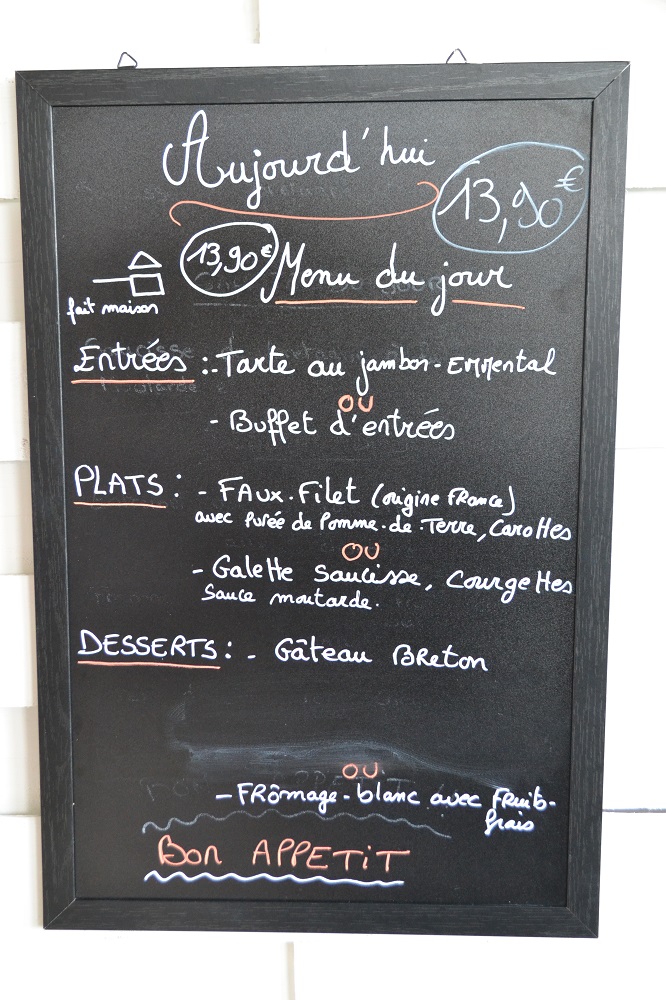 Aujourd'hui
13,90€
13,90€
Menu du jour
fait maison
Entrées :- Tarte au jambon - Emmental
OU
- Buffet d'entrées
PLATS : - Faux-Filet (origine France)
avec Purée de Pomme-de-Terre, Carottes
OU
- Galette Saucisse, Courgettes
Sauce moutarde.
DESSERTS : - Gâteau Breton
OU
- Frômage-blanc avec Fruits-
frais
Bon APPETiT